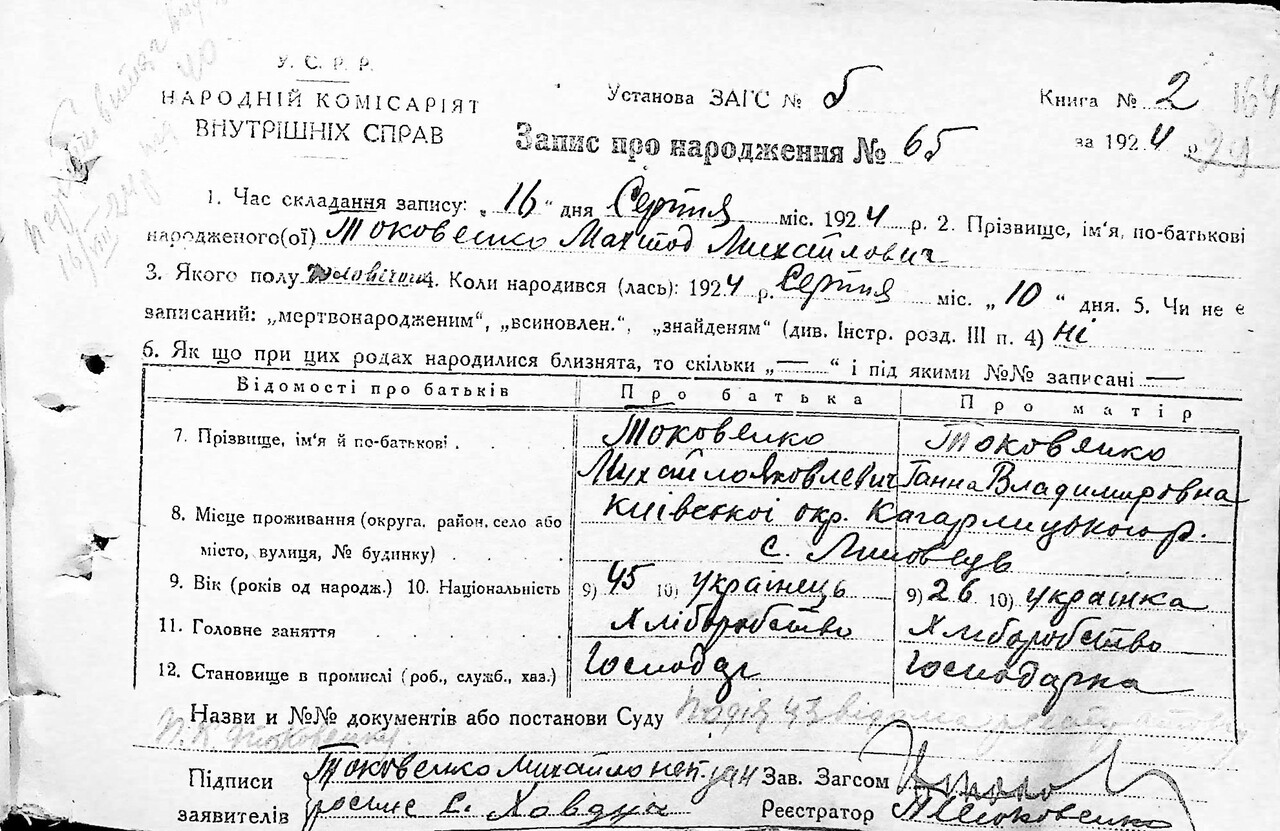 У. С. Р. Р.
НАРОДНІЙ КОМІСАРІЯТ
ВНУТРІШНІХ СПРАВ
Установа ЗАГС № 5
Книга № 2 164
Запис про народження № 65
за 1924 р. 24
1. Час складання запису: „16“ дня Серпня міс. 1924 р. 2. Прізвище, ім'я, по-батькові
народженого(ої) Токовенко Михайлович
3. Якого полу чоловічого 4. Коли народився (лась): 1924 р. Серпня міс. „10“ дня. 5. Чи не є
записаний: „мертвонародженим“, „всиновлен.“, „знайденям“ (див. Інстр. розд. III п. 4) Ні
6. Як що при цих родах народилися близнята, то скільки „—“ і під якими №№ записані —
Відомості про батьків Про батька Про матір
7. Прізвище, ім'я й по-батькові . Токовенко Токовенко
Михайло Яковлевич Ганна Владимировна
8. Місце проживання (округа, район, село або Київської окр. Кагарлицького р.
місто, вулиця, № будинку) . . . с. Липовець
9. Вік (років од народж.) 10. Національність 9) 45 10) українець 9) 26 10) українка
11. Головне заняття . . . . Хліборобство Хліборобство
12. Становище в промислі (роб., служб., хаз.) Господар Господарка
Назви и №№ документів або постанови Суду
Підписи Токовенко Михайло Зав. Загсом
заявителів Реєстратор